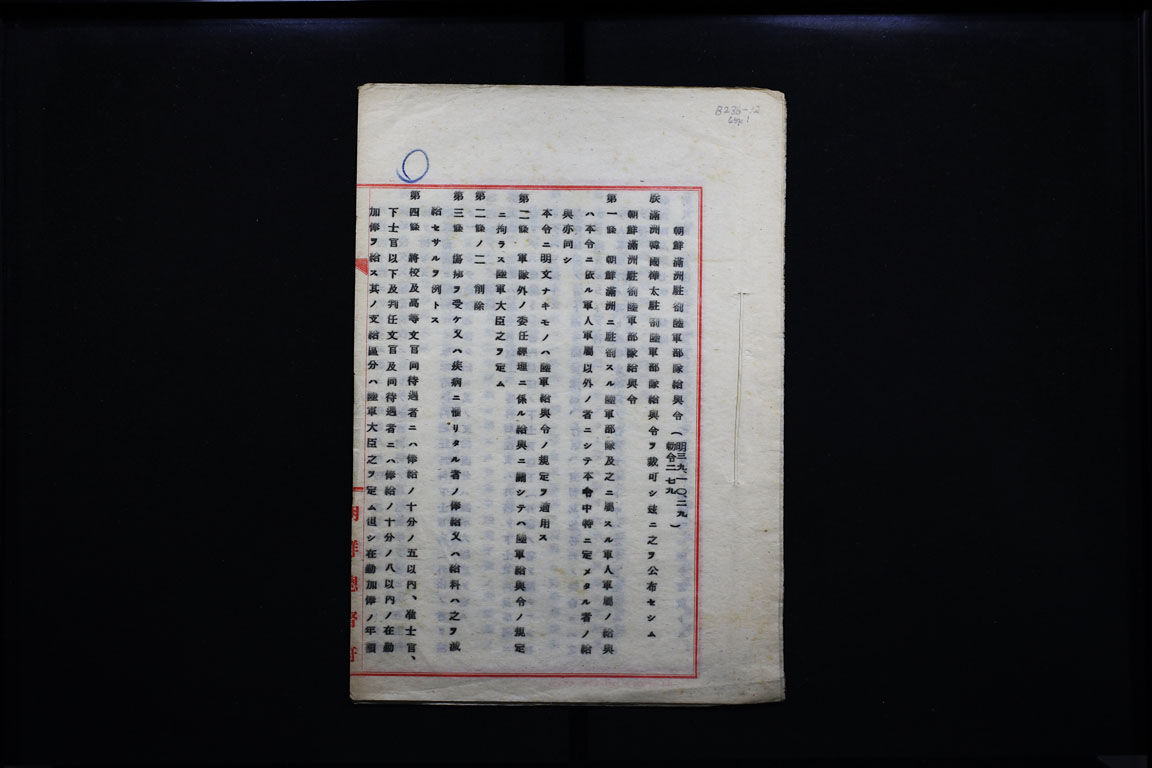 B235-12
朝鮮滿洲駐劄陸軍部隊給與令（明三九、一〇、二九 勅令二七九）
朕滿洲韓國樺太駐劄陸軍部隊給與令ヲ裁可シ玆ニ之ヲ公布セシム
朝鮮滿洲駐劄陸軍部隊給與令
第一條　朝鮮滿洲ニ駐劄スル陸軍部隊及之ニ屬スル軍人軍屬ノ給與
ハ本令ニ依ル軍人軍屬以外ノ者ニシテ本令中特ニ定メタル者ノ給
與亦同シ
本令ニ明文ナキモノハ陸軍給與令ノ規定ヲ適用ス
第二條　軍隊外ノ委任經理ニ係ル給與ニ關シテハ陸軍給與令ノ規定
ニ拘ラス陸軍大臣之ヲ定ム
第二條ノ二　削除
第三條　傷痍ヲ受ケ又ハ疾病ニ罹リタル者ノ俸給又ハ給料ハ之ヲ減
給セサルヲ例トス
第四條　將校及高等文官同待遇者ニハ俸給ノ十分ノ五以內、准士官、
下士官以下及判任文官及同待遇者ニハ俸給ノ十分ノ八以內ノ在勤
加俸ヲ給ス其ノ支給區分ハ陸軍大臣之ヲ定ム但シ在勤加俸ノ年額
朝鮮總督府